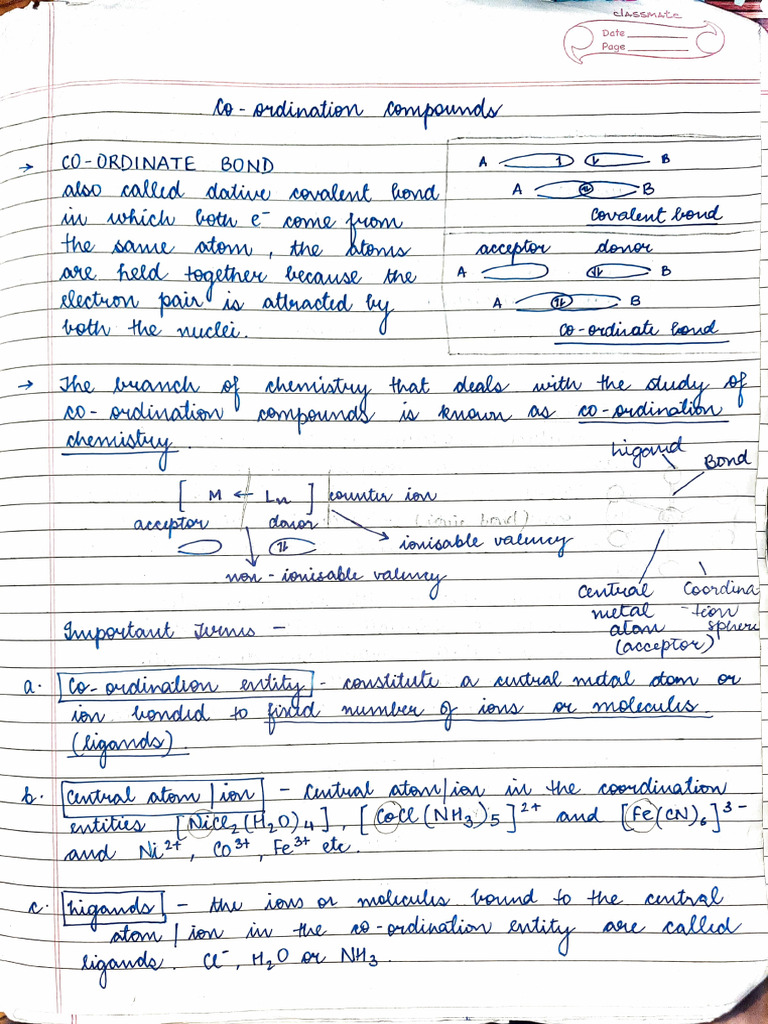 classmate
Date
Page
Co-ordination Compounds
→ CO-ORDINATE BOND
also called dative covalent bond
in which both e⁻ come from
the same atom, the atoms
are held together because the
electron pair is attracted by
both the nuclei.
A 1 B
A B
Covalent bond
acceptor donor
A B
A B
Co-ordinate bond
→ The branch of chemistry that deals with the study of
co-ordination compounds is known as co-ordination
chemistry.
[ M ← Ln ] counter ion
acceptor donor (ionic bond)
ionisable valency
non-ionisable valency
Ligand Bond
Central Coordina
metal -tion
atom sphere
(acceptor)
Important Terms -
a. Co-ordination entity - constitute a central metal atom or
ion bonded to fixed number of ions or molecules.
(ligands).
b. Central atom/ion - Central atom/ion in the coordination
entities [NiCl₂(H₂O)4], [CoCl(NH₃)5]²⁺ and [Fe(CN)6]³⁻
and Ni²⁺, Co³⁺, Fe³⁺ etc.
c. Ligands - the ions or molecules bound to the central
atom/ion in the co-ordination entity are called
ligands. Cl⁻, H₂O or NH₃.